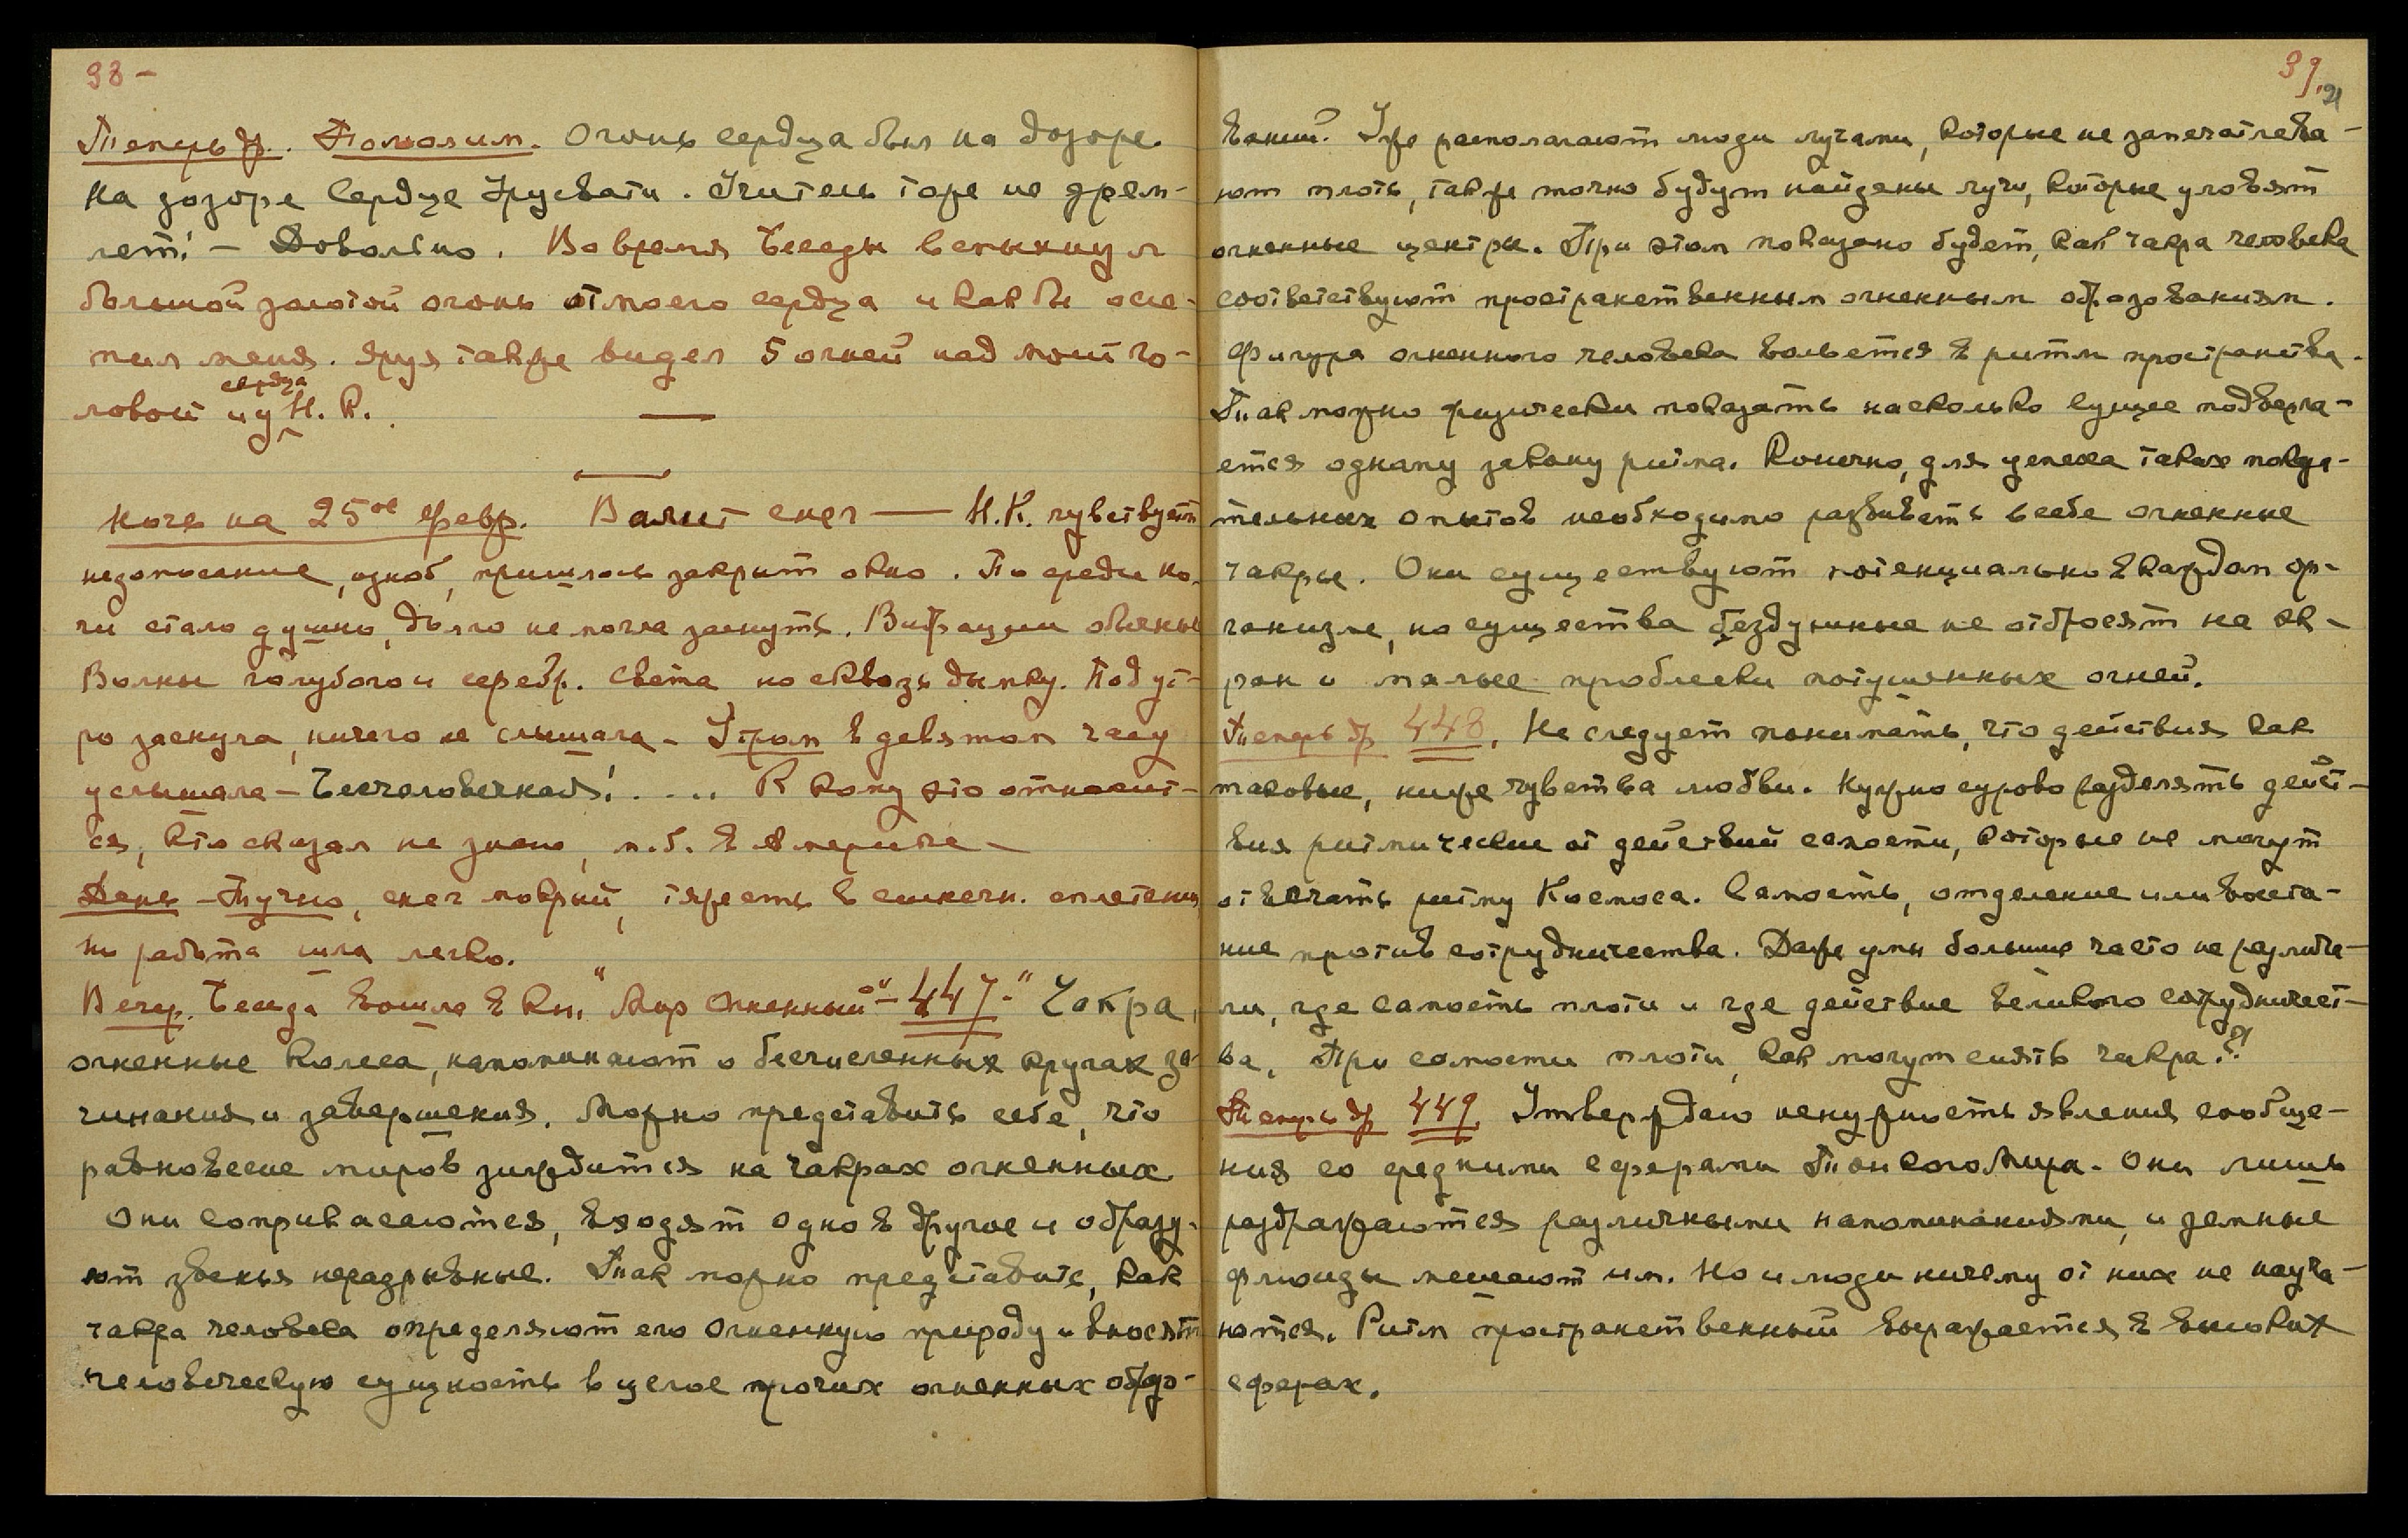 38 –
Теперь др. Помолим. Огонь сердца был на дозоре.
На дозоре Сердце Урусвати. Учитель тоже не дрем-
лет! – Довольно. Во время Беседы вспыхнул
большой золотой огонь от моего сердца и как бы осле-
пил меня. Яруя также видел 5 огней над моей го-
ловой и у сердца Н. К.
Ночь на 25ое Февр. Валит снег — Н.К. чувствует
недомогание, озноб, пришлось закрыт окно. По среди но-
чи стало душно, долго не могла заснуть. Вибрации обычные
Волны голубого и серебр. света но сквозь дымку. Под ут-
ро заснула, ничего не слышала – Утром в девятом часу
услышала – Бесчеловечная! .... К кому это относит-
ся, кто сказал не знаю, м.б. в Америке –
День – Тучно, снег мокрый, тяжесть в солнечн. сплетении
но работа шла легко.
Вечер. Беседа вошла в Кн. "Мир Огненный" – 447 – " Чакра,
огненные колеса, напоминают о бесчисленных кругах за-
чинания и завершения. Можно представить себе, что
равновесие миров зиждится на чакрах огненных
Они соприкасаются, входят одно в другое и образу-
ют звенья неразрывные. Так можно представить, как
чакра человека определяют его Огненную природу и вносят
человеческую сущность в целое прочих огненных обра-
39.
21
ваний. Уже располагают люди лучами, которые не запечатлева-
ют плоть, также точно будут найдены лучи, которые уловят
огненные центры. При этом показано будет, как чакра человека
соответствуют пространственным огненным образованиям.
Фигура огненного человека вольется в ритм пространства.
Так можно физически показать насколько сущее подверга-
ется одному закону ритма. Конечно, для успеха таких показа-
тельных опытов необходимо развивать в себе огненные
чакры. Они существуют потенциально в каждом ор-
ганизме, но существа бездушные не отбросят на эк-
ран и малые проблески потушенных огней.
Теперь др 448. Не следует понимать, что действия как
таковые, ниже чувства любви. Нужно сурово разделять дейст-
вия ритмические от действий самости, которые не могут
отвечать ритму Космоса. Самость, отделение или восста-
ние против сотрудничества. Даже умы большие часто не различа-
ли, где самость плоти и где действие великого сотрудничест-
ва. При самости плоти, как могут сиять чакра?!
Теперь др 449. Утверждаю ненужность явления сообще-
ния со средними сферами Тонкого Мира. Они лишь
раздражаются различными напоминаниями, и земные
флюиды мешают им. Но и люди ничему от них не науча-
ются. Ритм пространственный выражается в высоких
сферах.